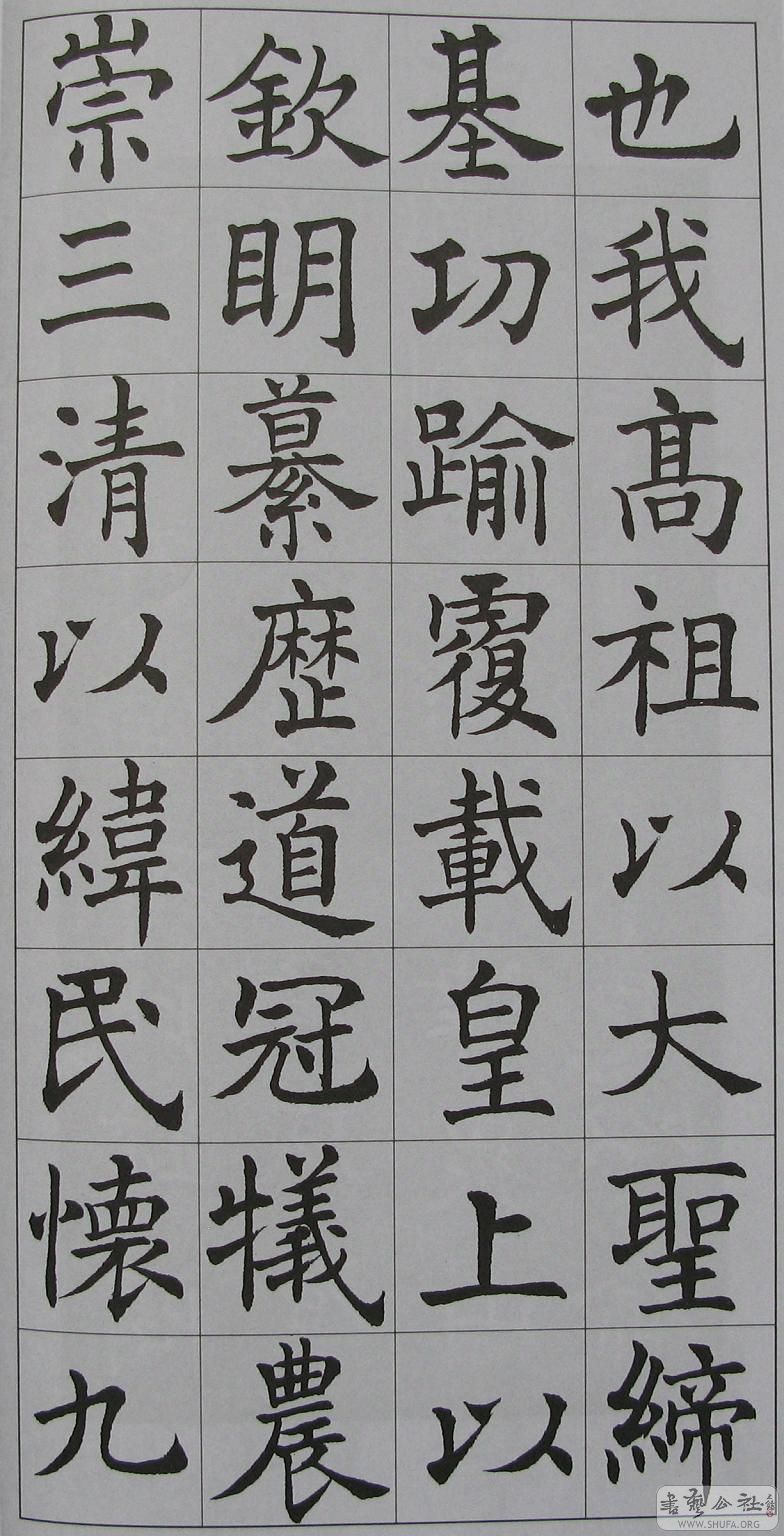 也我高祖以大聖締
基功踰覆載皇上以
欽明纂歷道冠犧農
崇三清以緯民懷九
書藝公社
WWW.SHUFA.ORG